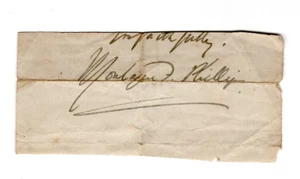 faithfully.
Montague Phillips